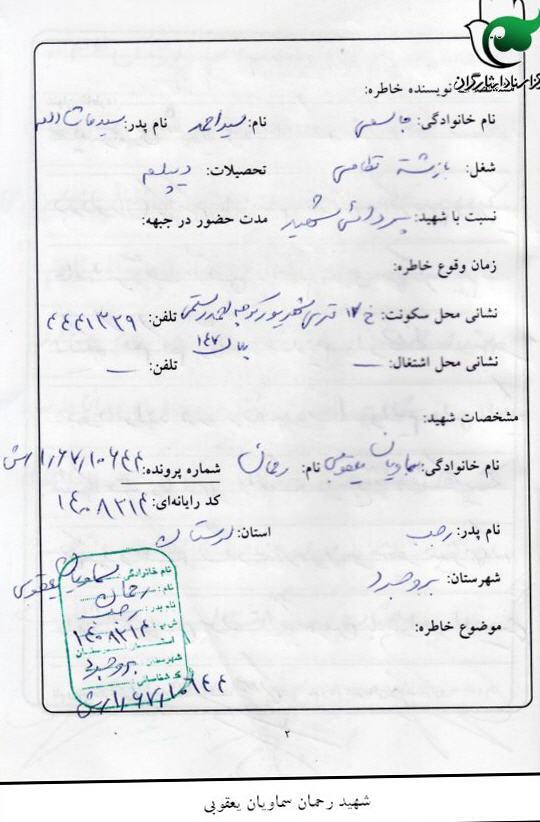 مرکز اسناد ایثارگران
مشخصات نویسنده خاطره:
نام خانوادگی: نام: سید احمد نام پدر: سید ماشاءالله
شغل: بازنشسته نظامی تحصیلات: دیپلم
نسبت با شهید: پسر دائی شهید مدت حضور در جبهه:
زمان وقوع خاطره:
نشانی محل سکونت: خ ۱۷ متری شهریور کوچه تلفن: ۴۴۴۱۳۲۹
پلاک ۱۴۷
نشانی محل اشتغال: — تلفن: —
مشخصات شهید:
نام خانوادگی: سماویان یعقوبی نام: رحمان شماره پرونده: ۱/۶۷/۱۰۶۴۴/ش
کد رایانه‌ای: ۱۴۰۸۲۱۴
نام پدر: رجب استان: لرستان
شهرستان: بروجرد
موضوع خاطره:
نام خانوادگی: سماویان یعقوبی
نام: رحمان
نام پدر: رجب
۱۴۰۸۲۱۴
استان: لرستان
شهرستان: بروجرد
کد شناسائی:
۱/۶۷/۱۰۶۴۴/ش
۲
شهید رحمان سماویان یعقوبی